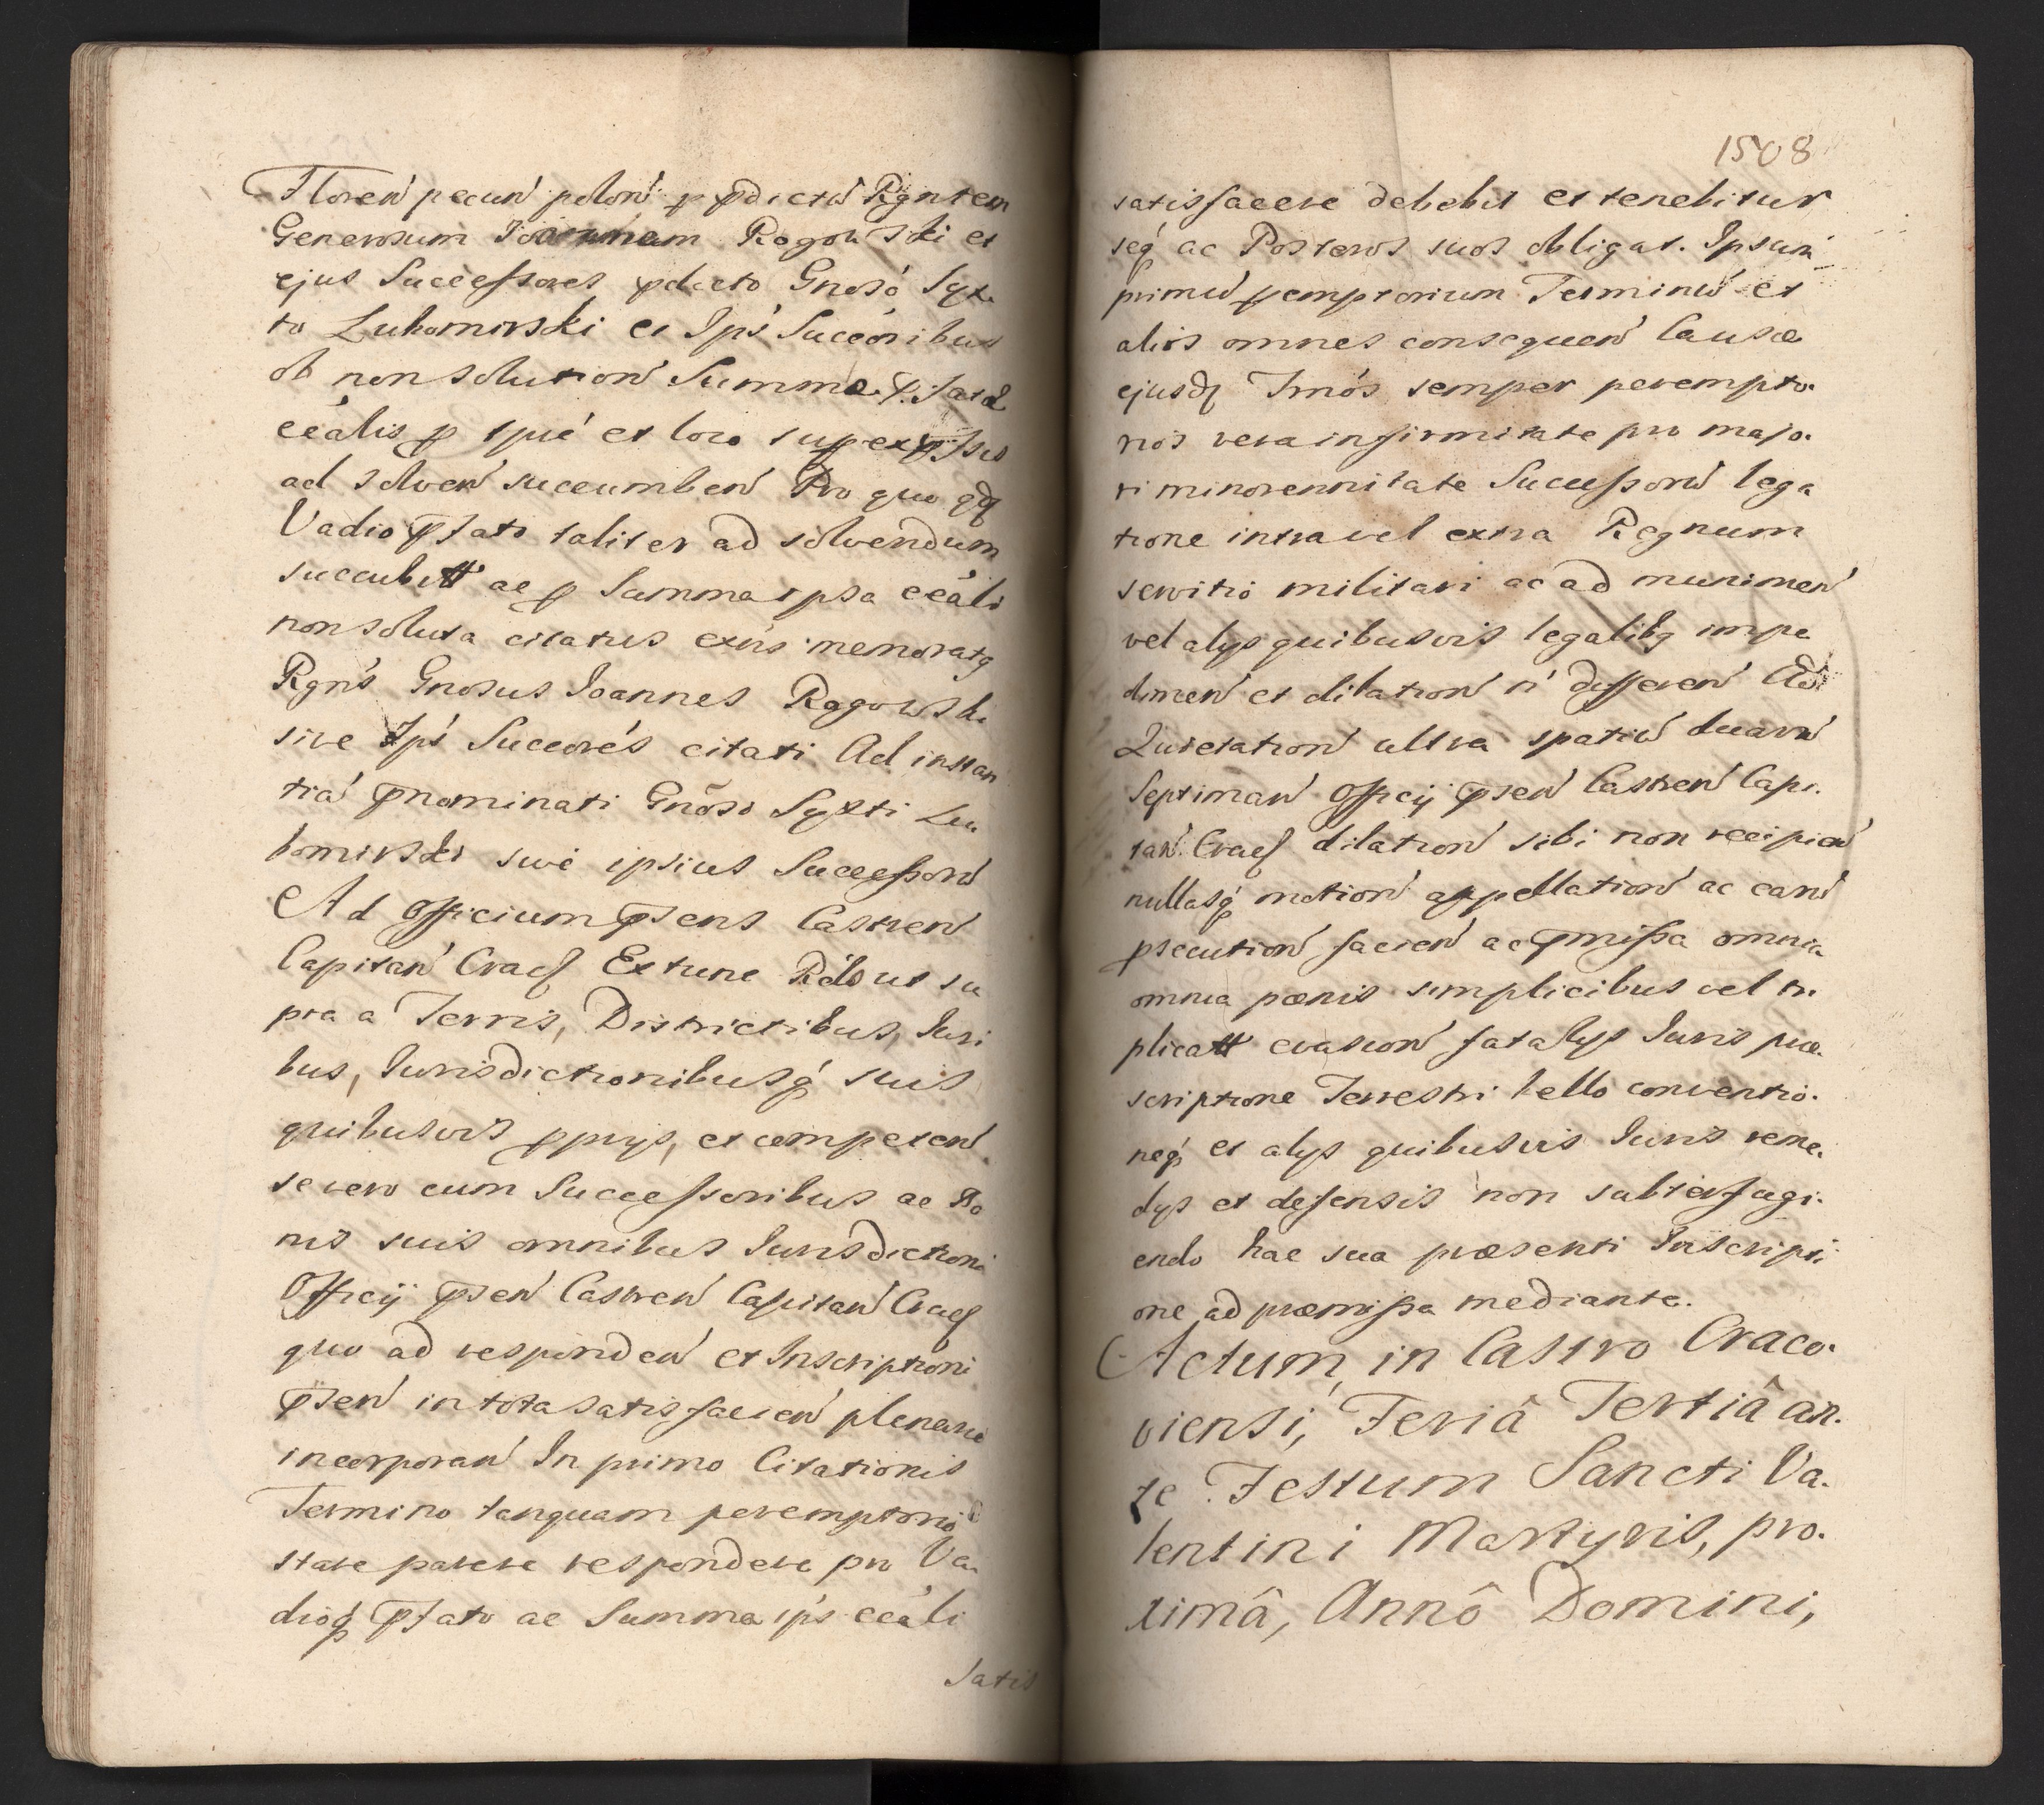 Floren pecun polon p pdictu Rgntem
Generosum Joannem Rogowski et
ejus Successores pdicto Gnoso Syx
to Lubomirski et Ips Succoribus
ob non solution Summae
ccalis p spue et loco sup exp
ad solven succumben Pro quo qdq
Vadio pfato taliter ad solvendum
succubitt ac p Summa ipsa ccali
non soluta citatus exns memoratq
Rgns Gnosus Joannes Rogowski
sive Ips Succores citati Ad instan
tia pnominati Gnoso Syxti Lu
bomirski sive ipsius Successoru
Ad Officium psens Castren
Capitan Cracs Extunc Rils ut su
pra a Terris, Districtibus, Juri
bus, Jurisdictionibusq suis
quibusvis pprijs, et competen
se vero cum Successoribus ac Bo
nis suis omnibus Jurisdictioni
Officij psen Castren Capitan Cracs
quo ad responden et Inscriptioni
psen in tota satisfacien plenarie
incorporan In primo Citationis
Termino tanquam peremptorio
stare parere respondere pro Va
dioq pfato ac Summa ips ccali
satis
1508
satisfacere debebit et tenebitur
seq ac Posteros suos obligat. Ipsum
primu pemptorium Terminu et
alios omnes consequen Causae
ejusdq Tmos semper perempto.
rios vera infirmitate pro majo.
ri minorennitate Successoru lega
tione intra vel extra Regnum
servitio militari ac ad munimen
vel alys quibusvis legalibq impe
dimen et dilation n differen Ad
Quietation ultra spatiu duaru
Septiman Officij psen Castren Capi.
tan Cracs dilation sibi non recipien
nullasq motion appellation ac earu
psecution facien ac pmissa omnia
omnia poenis simplicibus vel tri
plicatt evasion fatalys Juris prae.
scriptione Terrestri bello conventio.
neq et alys quibusvis Juris reme.
dys et defensis non subterfugi.
endo hac sua praesenti Inscripti.
one ad praemissa mediante.
Actum in Castro Craco.
viensi, Feriâ Tertiâ an.
te Festum Sancti Va.
lentini Martyris, pro.
ximâ, Annô Domini,